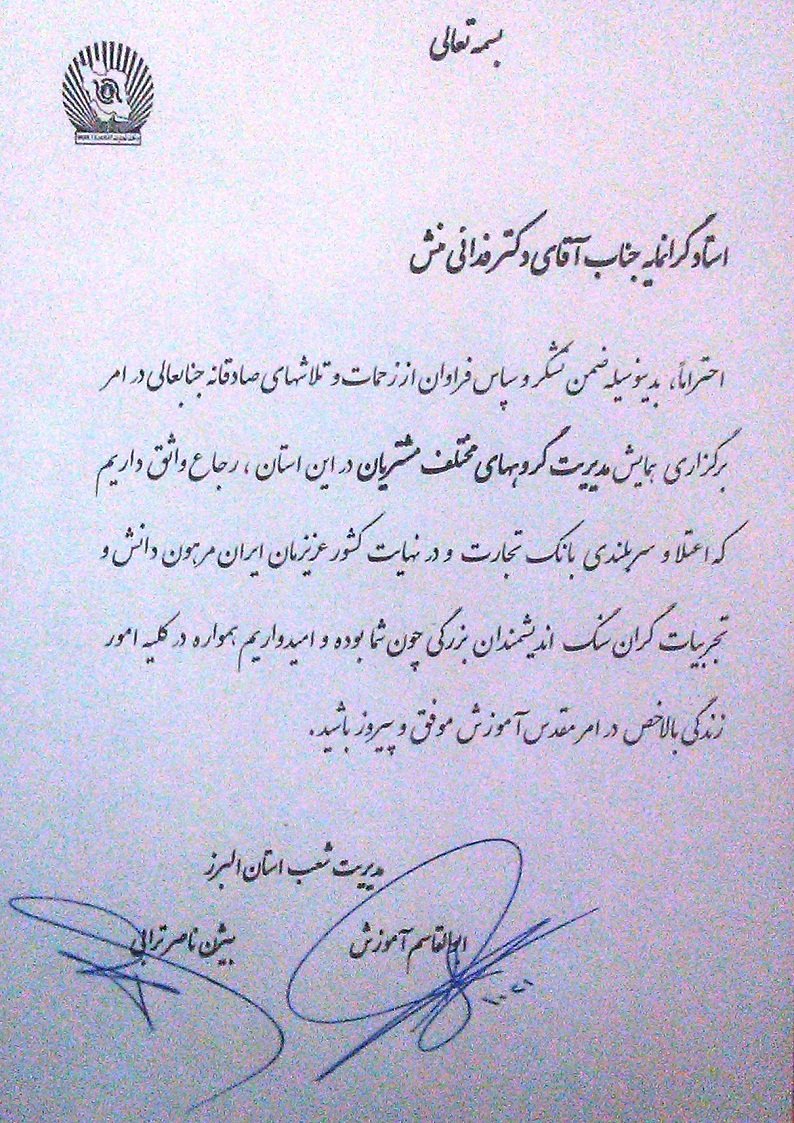 بسمه تعالی
استاد گرانمایه جناب آقای دکتر فدائی منش
احتراماً، بدینوسیله ضمن تشکر و سپاس فراوان از زحمات و تلاشهای صادقانه جنابعالی در امر
برگزاری همایش مدیریت گروههای مختلف مشتریان در این استان ، رجاع واثق داریم
که اعتلا و سربلندی بانک تجارت و در نهایت کشور عزیزمان ایران مرهون دانش و
تجربیات گران سنگ اندیشمندان بزرگی چون شما بوده و امیدواریم همواره در کلیه امور
زندگی بالاخص در امر مقدس آموزش موفق و پیروز باشید .
مدیریت شعب استان البرز
ابوالقاسم آموزش بیژن ناصر ترابی